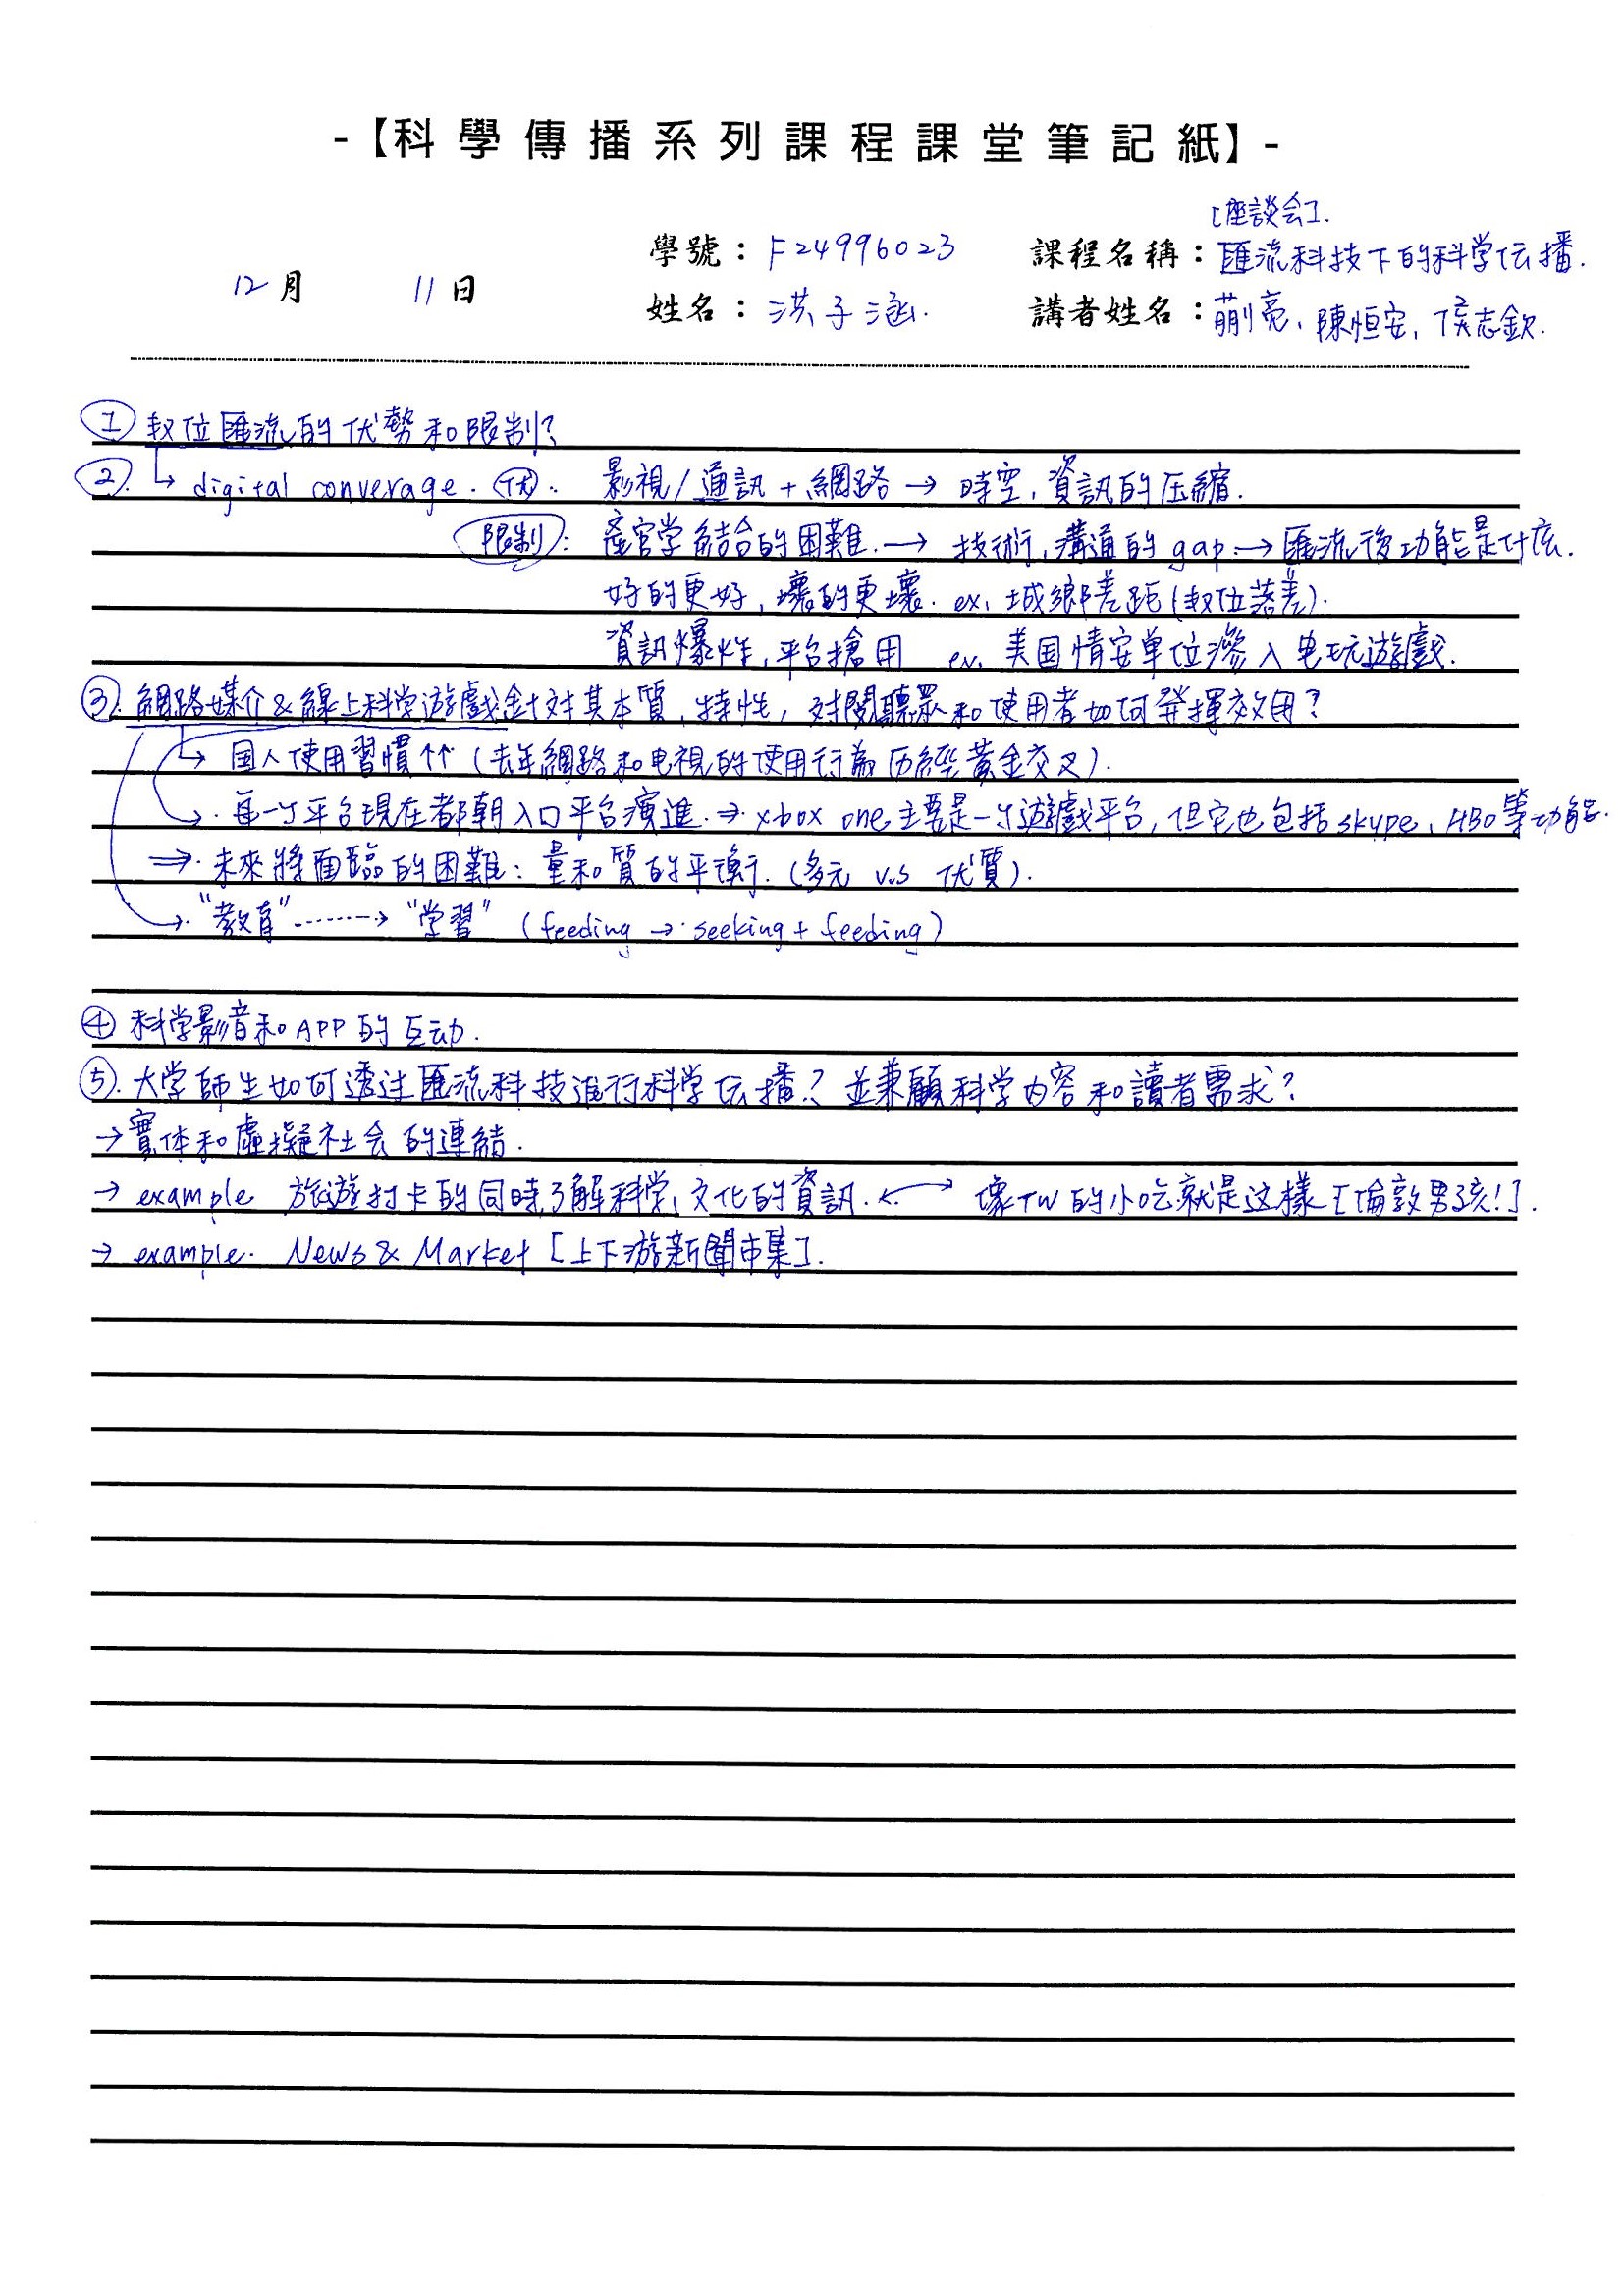 -【科學傳播系列課程課堂筆記紙】-
[座談会].
學號：F24996023 課程名稱：匯流科技下的科学伝播.
12月 11日
姓名：洪子涵. 講者姓名：蒯亮、陳恒安、侯志欽.
① 数位匯流的优勢和限制?
②. ↳ digital converage. 优. 影視/通訊+網路→時空,資訊的压縮.
限制: 產官学結合的困難.→技術,溝通的gap.→匯流後功能是什庅.
好的更好,壞的更壞. ex. 城鄉差距(数位落差).
資訊爆炸,平台搶用 ex. 美国情安單位滲入电玩遊戲.
③. 網路媒介&線上科学遊戲針对其本質、特性,对閱聽眾和使用者如何發揮效用?
↳ 国人使用習慣↑↑(去年網路和电視的使用行為历經黃金交叉).
→. 每一个平台現在都朝入口平台演進.⇒ xbox one主要是一个遊戲平台,但它也包括skype、HBO等功能.
⇒. 未來將面臨的困難: 量和質的平衡. (多元 v.s 优質).
→. "教育"·······→ "学習" (feeding→seeking+feeding)
④ 科学影音和APP的互动.
⑤. 大学師生如何透过匯流科技進行科学伝播? 並兼顧科学內容和讀者需求?
→實体和虛擬社会的連結.
→ example 旅遊打卡的同時,了解科学,文化的資訊.↔ 像TW的小吃就是这樣[倫敦男孩!].
→ example. News & Market [上下游新聞市集].